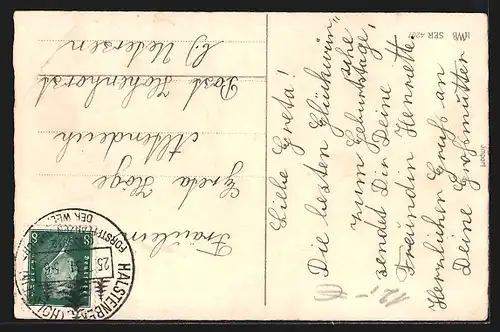 HWB SER 4297
Import
Liebe Greta!
Die besten Glückwün„
sche
zum Geburtstage,
sendet Dir Deine
Freundin Henriette.
Herzlichen Gruß an
Deine Großmutter
12.-
Fräulein
Greta Hoge
Altendeich
Post Hohenhorst
b/ Uetersen
HALSTENBEK (HOLST)
DER WELT
25
8